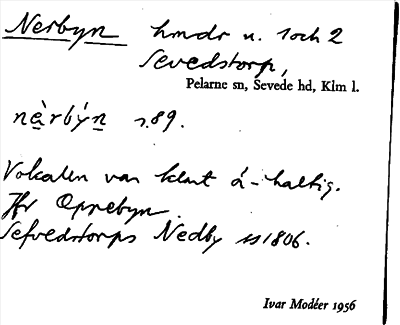 Nerbyn hmdr u. 1 och 2
Sevedstorp,
Pelarne sn, Sevede hd, Klm l.
nè̱rbýn̲ s.89.
Vokalen var klart á-haltig.
Jfr Oppebyn.
Sefvedstorps Nedby ss 1806.
Ivar Modéer 1956